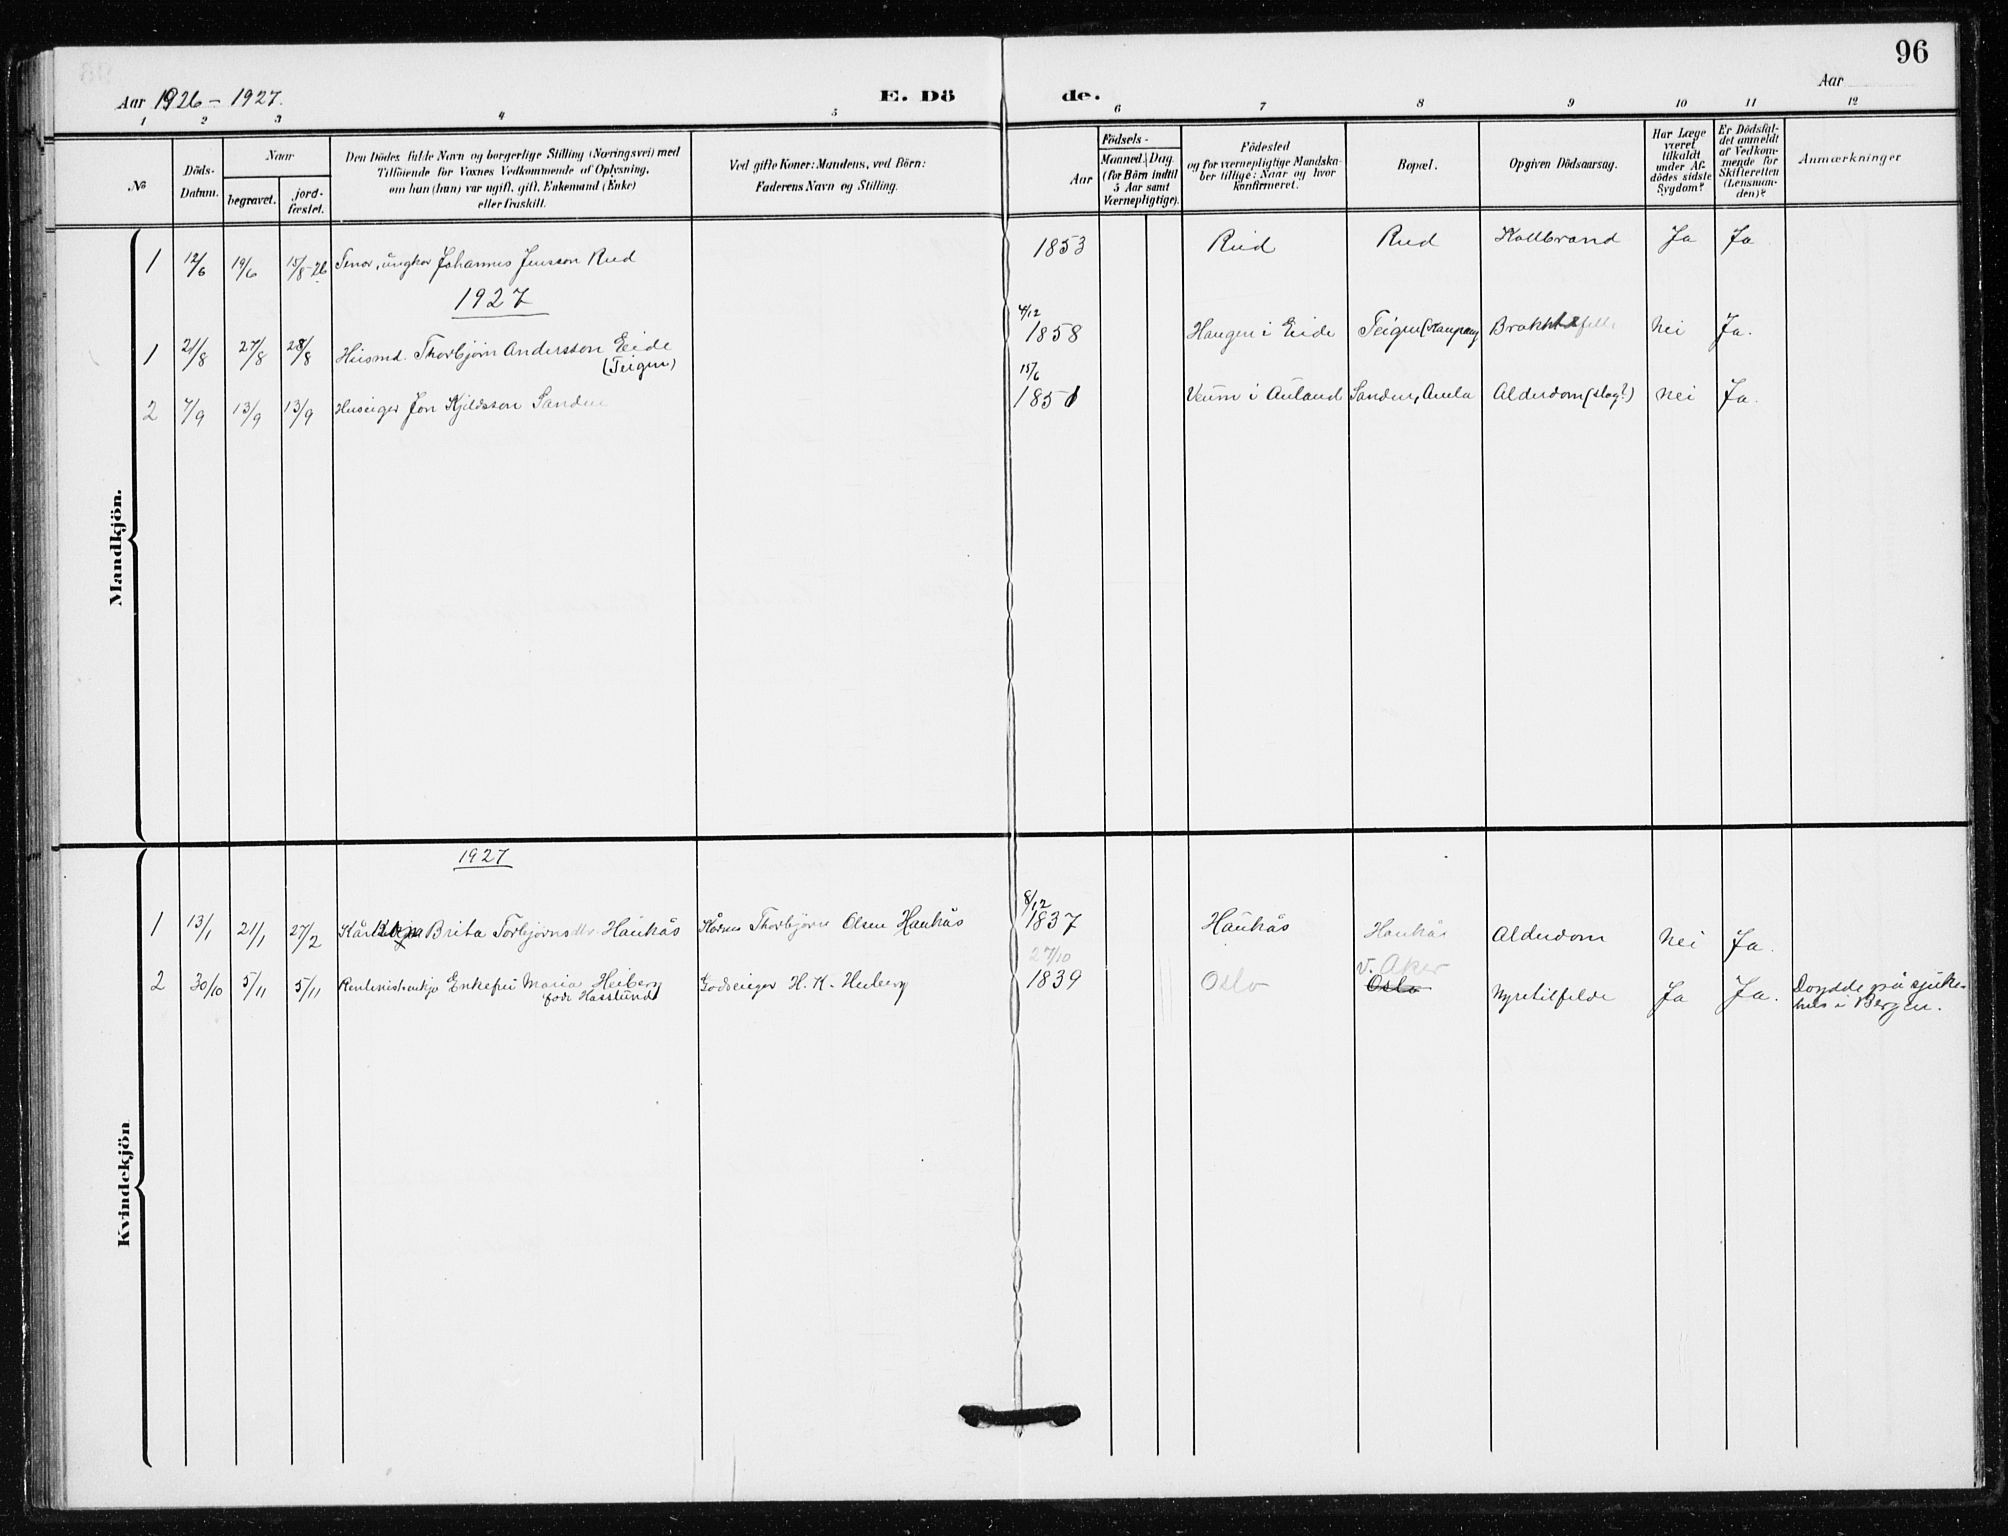 96
Aar 1926 – 1927.
E. Dö de.
Aar
1 2 3 4 5 6 7 8 9 10 11 12
No
Döds-
Datum.
Naar
begravet.
jord-
fæstet.
Den Dödes fulde Navn og borgerlige Stilling (Næringsvei) med
Tilföiende for Voxnes Vedkommende af Oplysning,
om han (hun) var ugift, gift, Enkemand (Enke)
eller fraskilt.
Ved gifte Koner: Mandens, ved Börn:
Faderens Navn og Stilling.
Födsels-
Aar
Maaned. Dag.
(for Börn indtil
5 Aar samt
Værnepligtige).
Födested
og for værnepligtige Mandska-
ber tillige: Naar og hvor
konfirmeret.
Bopæl.
Opgiven Dödsaarsag.
Har Læge
været
tilkaldt
under Af-
dödes sidste
Sygdom?
Er Dödsfal-
det anmeldt
af Vedkom-
mende for
Skifteretten
(Lensman-
den)?
Anmærkninger
Mandkjön.
1 12/6 19/6 15/8-26 ungkar Johannes Jensson Rud 1853 Rud Rud Koldbrand Ja Ja
1927
1 21/8 27/8 28/8 Husmd. Thorbjørn Andersson Eide 4/12 1858 Haugen i Eide Teigen (Kaupang Nei Ja.
(Teigen)
2 7/9 13/9 13/9 Huseiger Jon Kjeldsson Sanden 15/6 1851 Veum i Auland Sanden, Amla Alderdom (slag?) Nei Ja.
Kvindekjön
1927
1 13/1 21/1 27/2 Brita Torbjørnsdtr. Haukås Thorbjørn Olsen Haukås 8/12 1837 Haukås Haukås Alderdom Nei Ja.
2 30/10 5/11 5/11 Enkefru Maria Heiberg Godseiger H. K. Heiberg 27/10 1839 Oslo V. Aker Oslo Nyretilfelde Ja Ja. Doydde på sjuke-
født Hasslund
hus i Bergen.